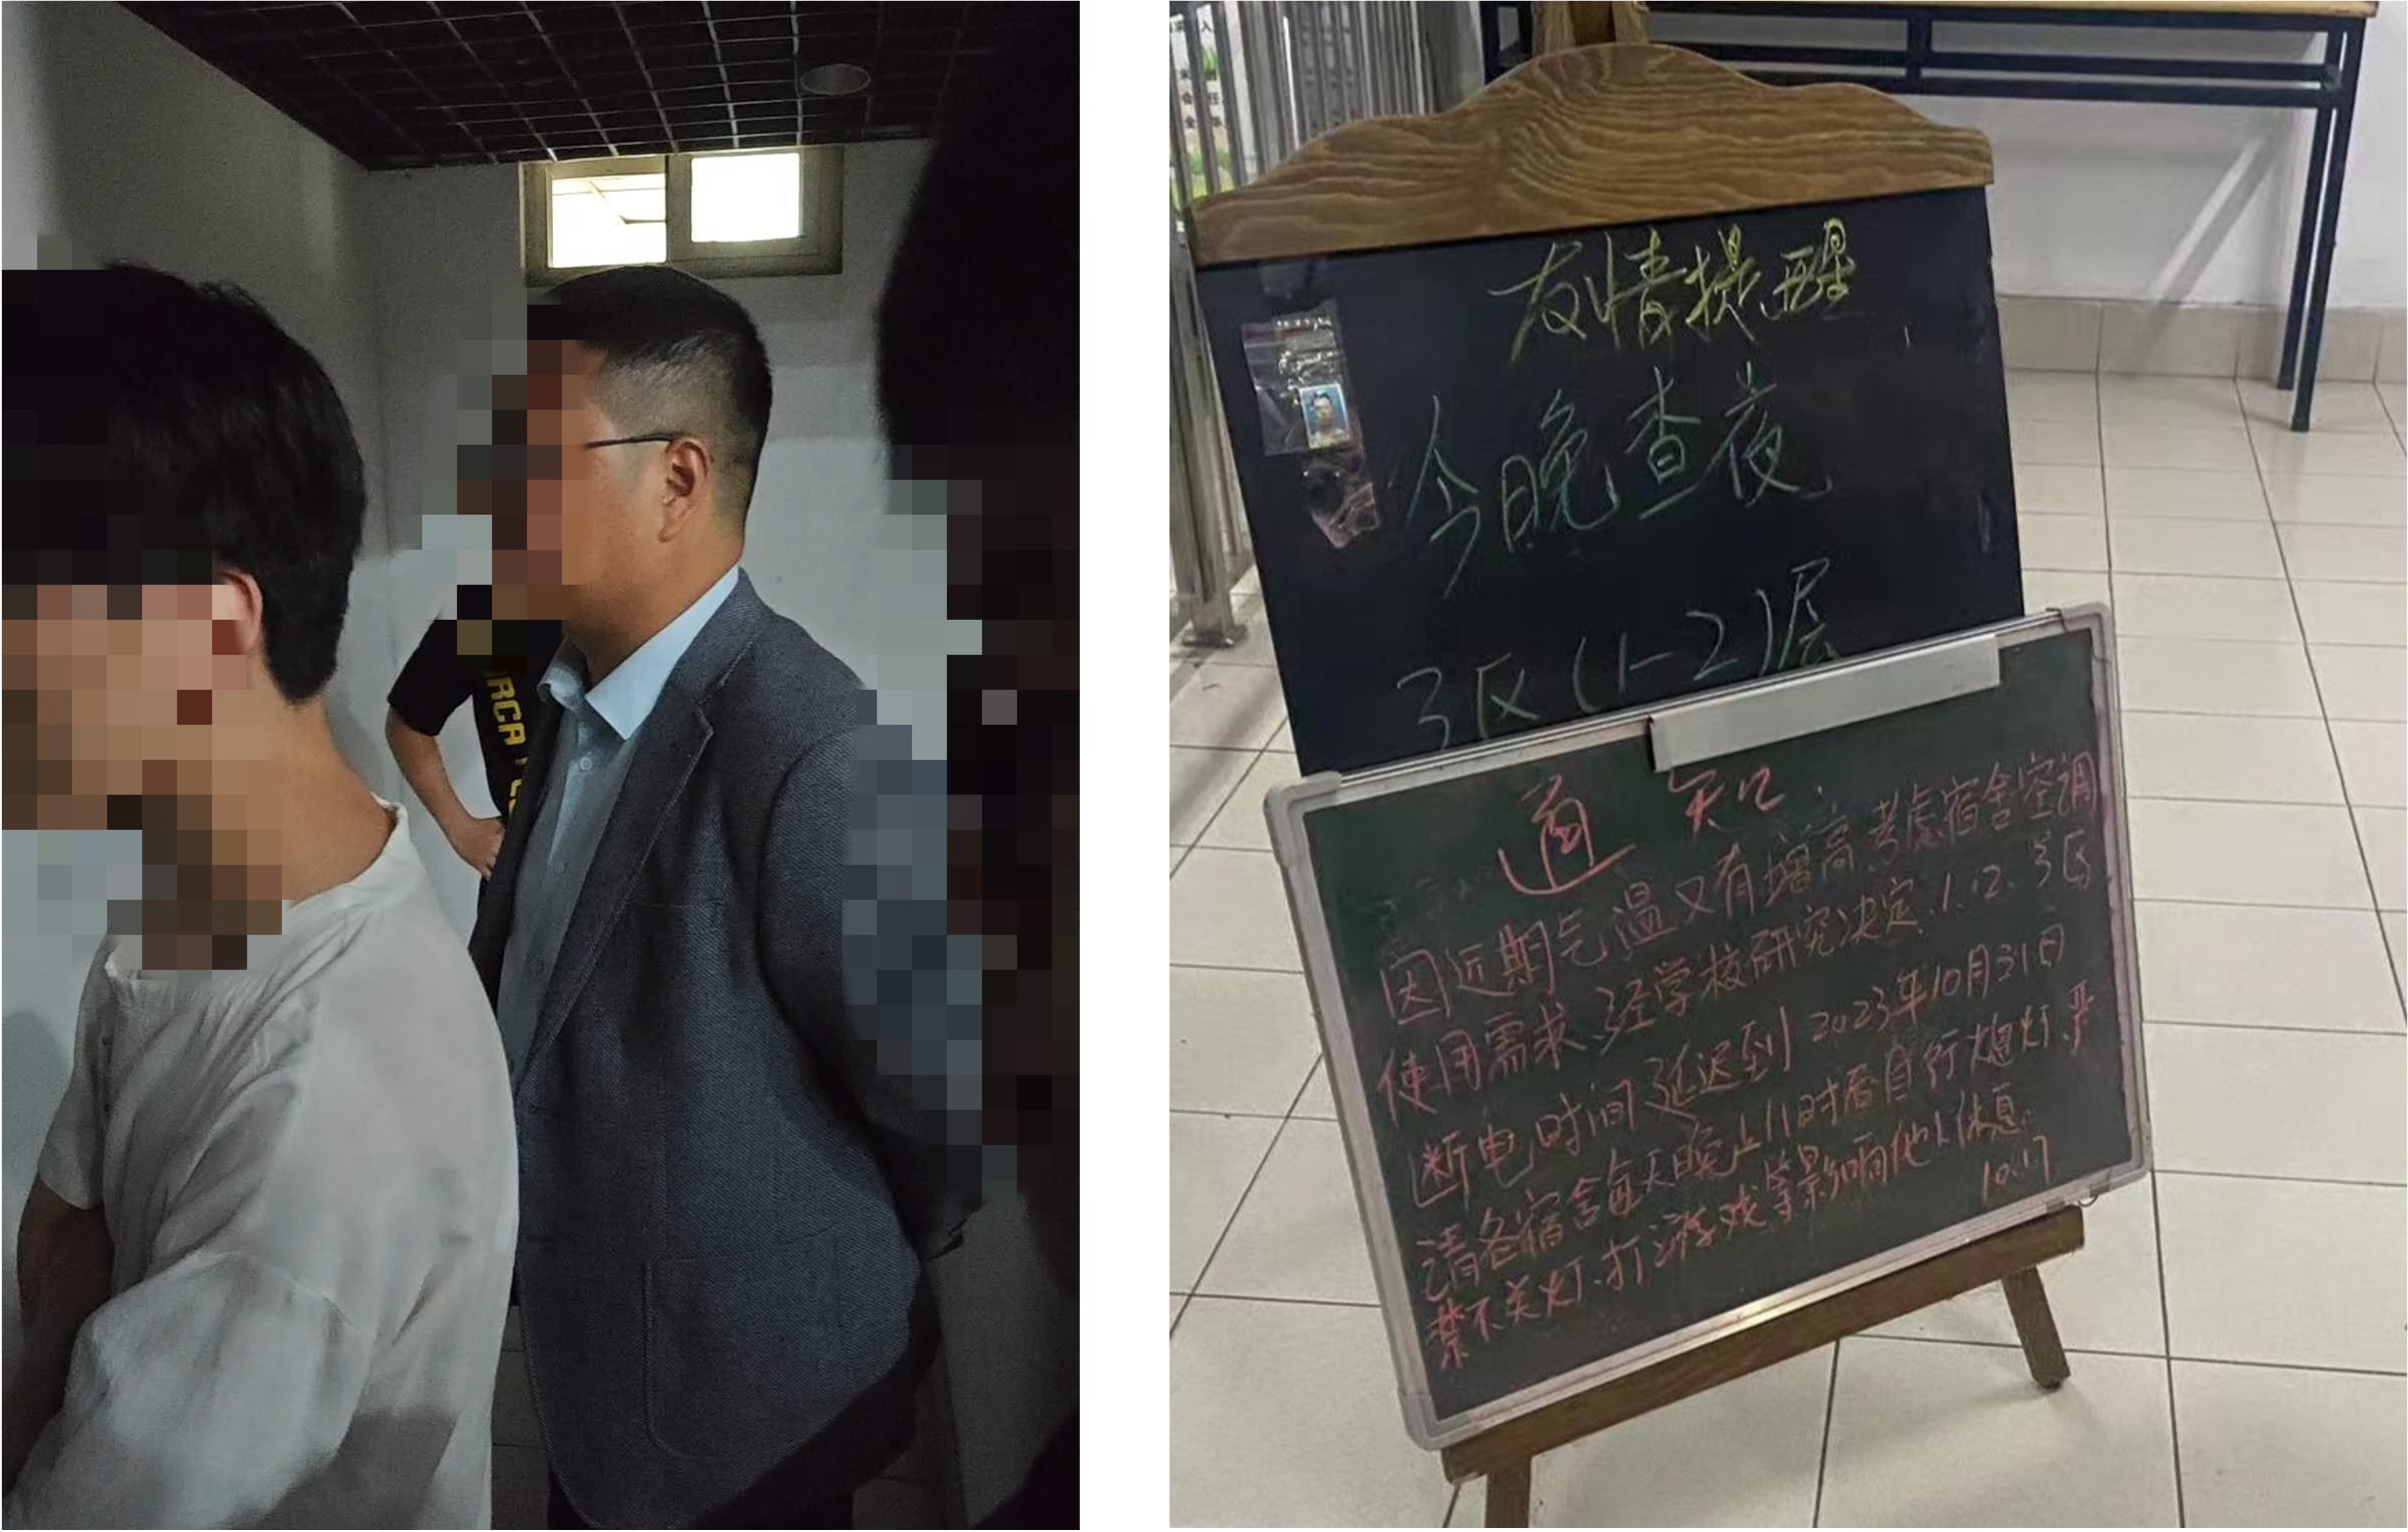 RCA
友情提醒
今晚查夜
3区(1-2)层
通知
因近期气温又有增高.考虑宿舍空调
使用需求.经学校研究决定.1.2.3区
断电时间延迟到2023年10月31日
请各宿舍每天晚上11时搭自行熄灯.严
禁不关灯.打游戏等影响他人休息.
10.17